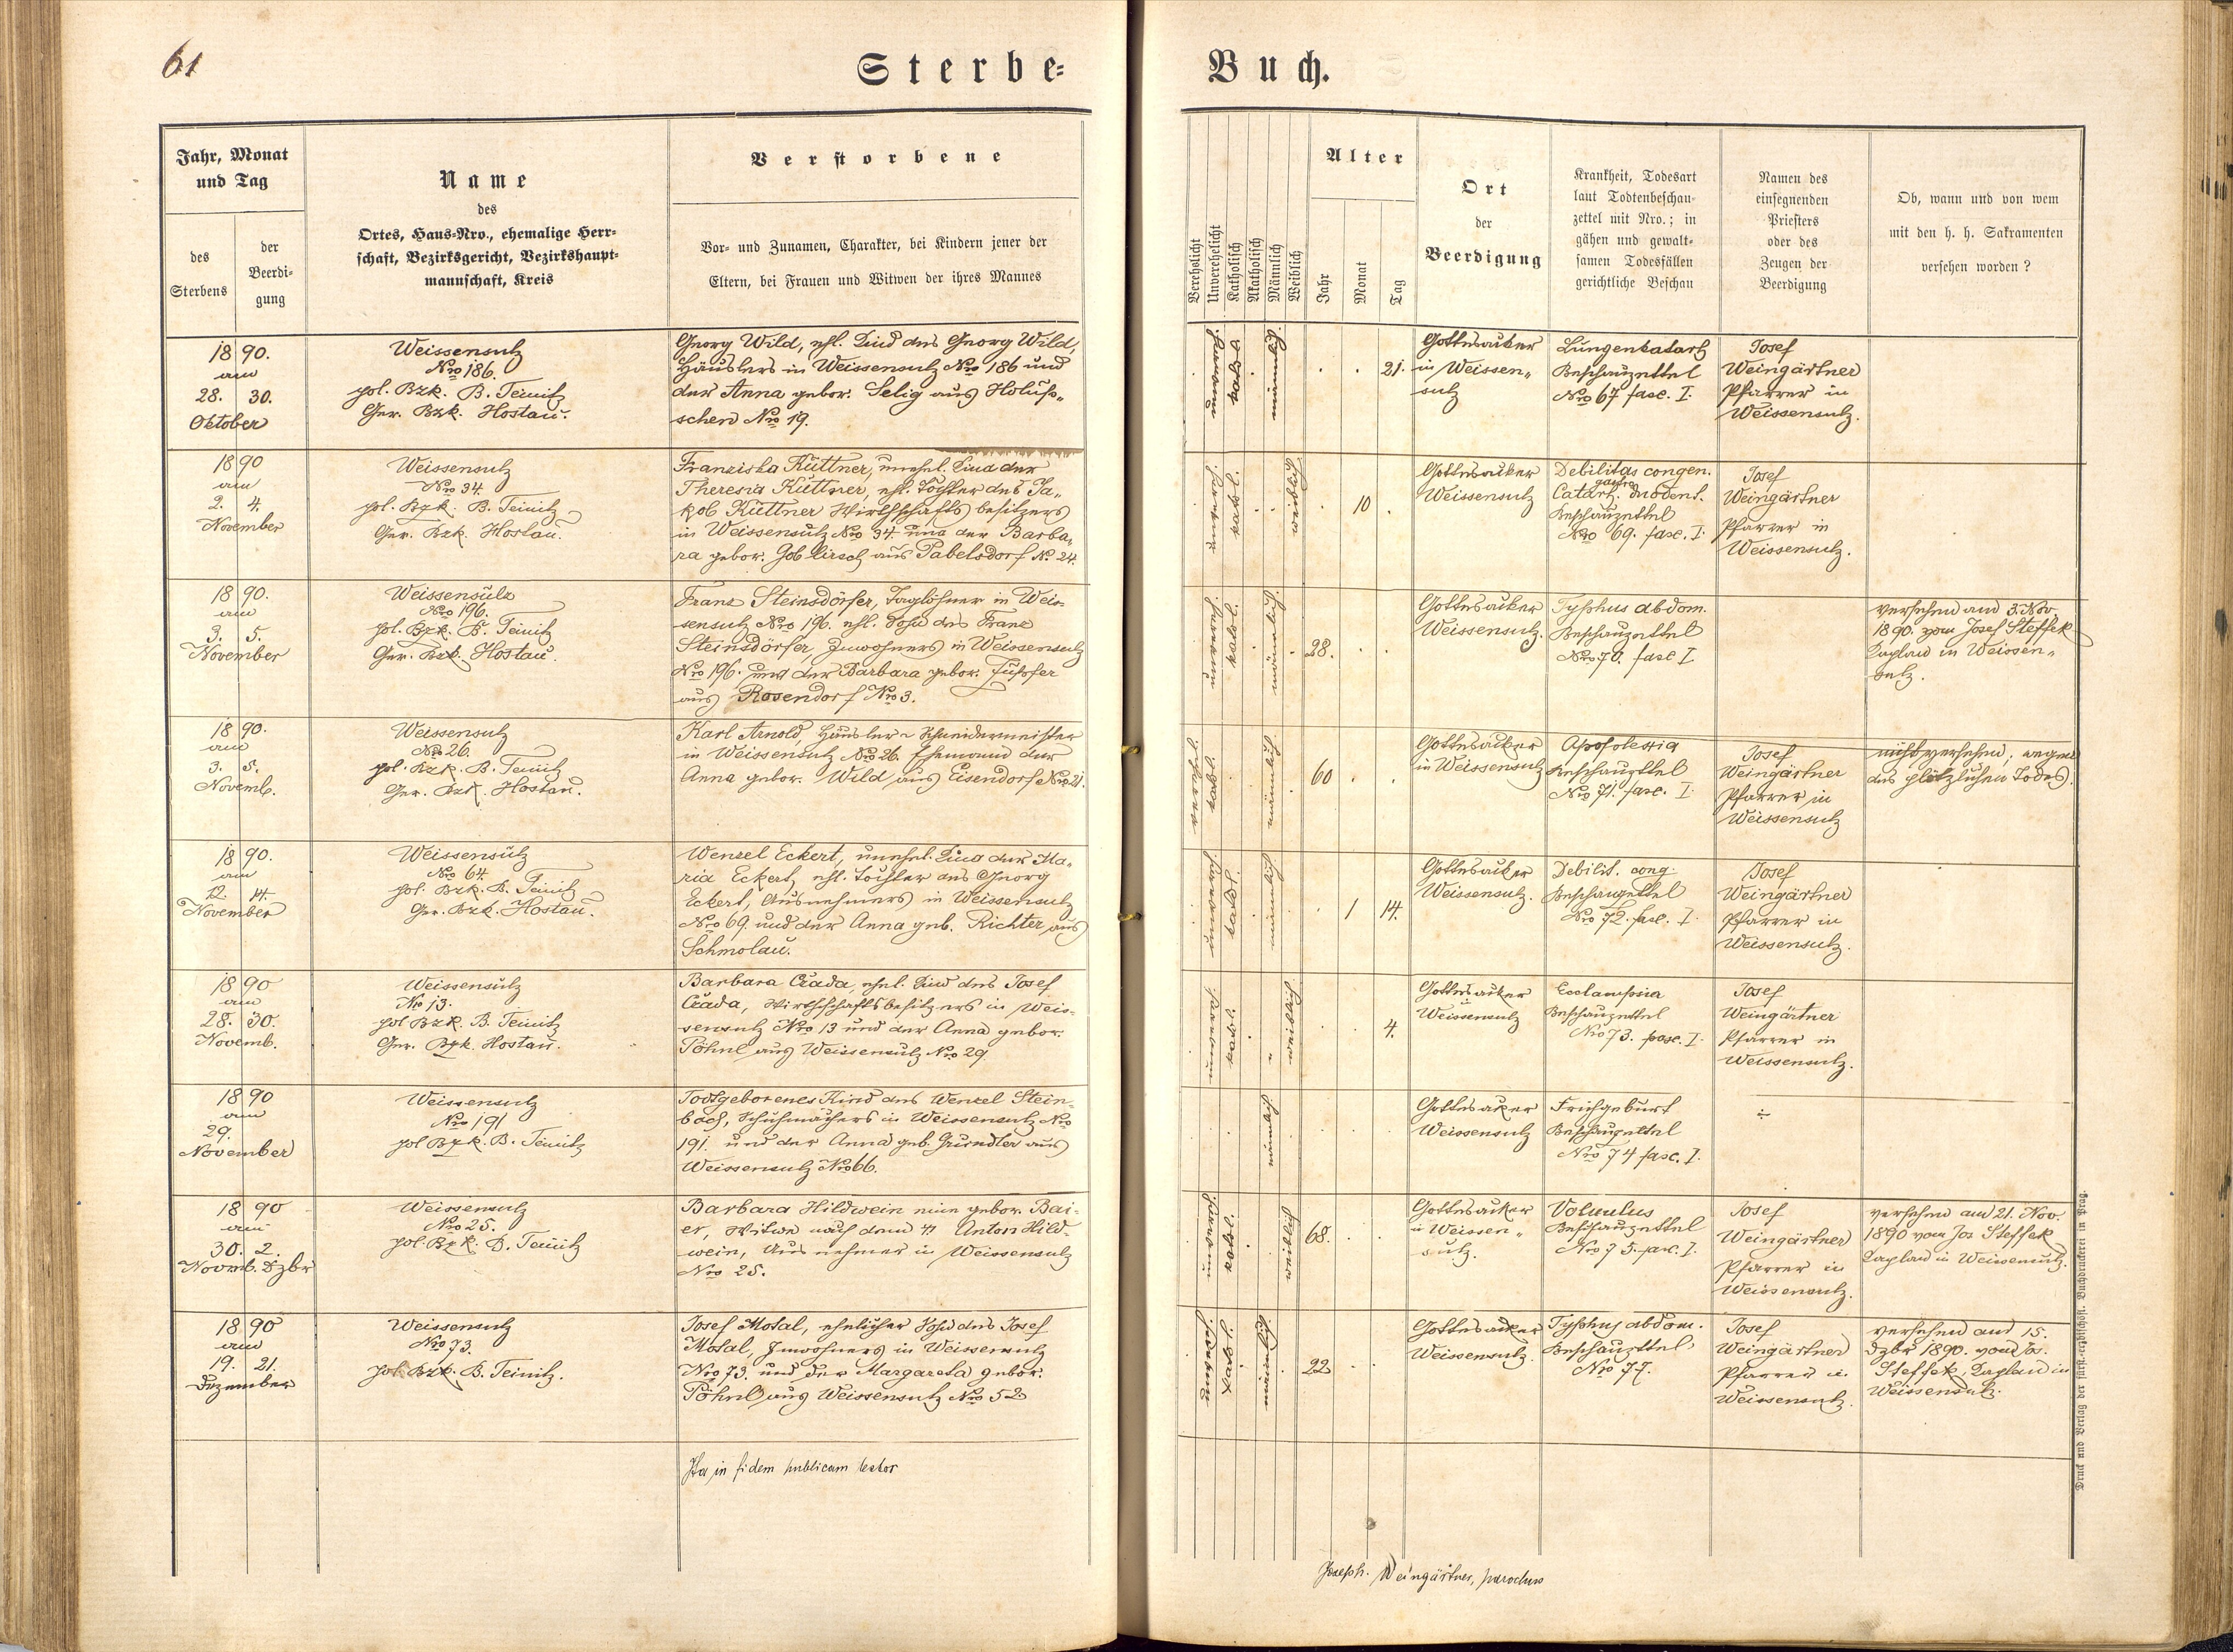 61
Sterbe-
Buch.
Jahr, Monat
und Tag
des
Sterbens
der
Beerdi-
gung
Name
des
Ortes, Haus-Nro., ehemalige Herr-
schaft, Bezirksgericht, Bezirkshaupt-
mannschaft, Kreis
Verstorbene
Vor- und Zunamen, Charakter, bei Kindern jener der
Eltern, bei Frauen und Witwen der ihres Mannes
Verehelicht
Unverehelicht
Katholisch
Akatholisch
Männlich
Weiblich
Alter
Jahr
Monat
Tag
Ort
der
Beerdigung
Krankheit, Todesart
laut Todtenbeschau-
zettel mit Nro.; in
gähen und gewalt-
samen Todesfällen
gerichtliche Beschau
Namen des
einsegnenden
Priesters
oder des
Zeugen der
Beerdigung
Ob, wann und von wem
mit den h. h. Sakramenten
versehen worden?
1890.
am
28. 30.
Oktober
Weissensulz
Nro 186.
pol. Bzk. B. Teinitz
Ger. Bzk. Hostau.
Georg Wild, ehl. Kind des Georg Wild,
Häuslers in Weissensulz Nro 186 und
der Anna gebor. Selig aus Holuß„
schen Nro 19.
kathol.
männlich
21.
Gottesacker
in Weissen„
sulz
Lungenkatarh
Beschauzettel
Nro 67 fasc. I.
Josef
Weingärtner
Pfarrer in
Weissensulz.
1890
am
2. 4.
November
Weissensulz
Nro 34.
pol. Bzk. B. Teinitz
Ger. Bzk. Hostau.
Franziska Küttner, unehel. Kind der
Theresia Küttner, ehl. Tochter des Ja„
kob Küttner Wirthschaftsbesitzers
in Weissensulz Nro 34. und der Barba„
ra gebor. Gob aus Pabelsdorf No 24.
kathol.
weiblich
10
Gottesacker
Weissensulz
Debilitas congen.
gastro
Catarh. duodent.
Beschauzettel
Nro 69. fasc. I.
Josef
Weingärtner
Pfarrer in
Weissensulz.
1890.
am
3. 5.
November
Weissensulz
Nro 196.
pol. Bzk. B. Teinitz
Ger. Bzk. Hostau.
Franz Steinsdörfer, Taglöhner in Weis-
sensulz Nro 196. ehl. Sohn des Franz
Steinsdörfer, Inwohners in Weissensulz
Nro 196. und der Barbara gebor.
aus Rosendorf Nro 3.
kathol.
männlich.
28.
Gottesacker
Weissensulz.
Typhus abdom.
Beschauzettel
Nro 70. fasc I
versehen am 3. Nov.
1890. vom Josef Steffek
Kaplan in Weissen„
sulz.
1890.
am
3. 5.
Novemb.
Weissensulz
Nro 26.
pol. Bzk. B. Teinitz
Ger. Bzk. Hostau.
Karl Arnold, Häusler - Schneidermeister
in Weissensulz Nro 26. Ehemann der
Anna gebor. Wild aus Eisendorf Nro 21.
kathol.
männlich.
60
Gottesacker
in Weissensulz
Apoplexia
Beschauzettel
Nro 71. fasc. I
Josef
Weingärtner
Pfarrer in
Weissensulz
nicht versehen; wegen
des plötzlichen Todes.
1890.
am
12. 14.
November
Weissensulz
Nro 64.
pol. Bzk. B. Teinitz
Ger. Bzk. Hostau.
Wenzel Eckert, unehel. Kind der Ma„
ria Eckert, ehl. Tochter des Georg
Eckert, Ausnehmers in Weissensulz
Nro 69. und der Anna geb. Richter aus
Schmolau.
kathol.
männlich
1 14.
Gottesacker
Weissensulz.
Debilit. cong.
Beschauzettel
Nro 72. fasc. I.
Josef
Weingärtner
Pfarrer in
Weissensulz.
1890
am
28. 30.
Novemb.
Weissensulz
Nro 13.
pol Bzk. B. Teinitz
Ger. Bzk. Hostau.
Barbara Czada, ehel. Kind des Josef
Czada, Wirthschaftsbesitzers in Weis-
sensulz Nro 13 und der Anna gebor.
Pöhnl aus Weissensulz Nro 29.
kathol.
weiblich
4.
Gottesacker
Weissensulz
Ecclampsia
Beschauzettel
Nro 73. fasc. I.
Josef
Weingärtner
Pfarrer in
Weissensulz.
1890
am
29.
November
Weissensulz
Nro 191
pol Bzk. B. Teinitz
Todtgeborenes Kind des Wenzel Stein-
bach, Schuhmachers in Weissensulz Nro
191. und der Anna geb. Gründler aus
Weissensulz Nro 66.
männlich
Gottesacker
Weissensulz
Frühgeburt
Beschauzettel
Nro 74 fasc. I.
÷
1890
am
30. 2.
Novemb. Dzbr
Weissensulz
Nro 25.
pol. Bzk. B. Teinitz
Barbara Hildwein eine gebor. Bai-
er, Witwe nach dem Anton Hild-
wein, Ausnehmer in Weissensulz
Nro 25.
kathol.
weiblich
68.
Gottesacker
in Weissen„
sulz.
Volvulus
Beschauzettel
Nro 75. fasc. I.
Josef
Weingärtner
Pfarrer in
Weissensulz.
versehen am 21. Nov.
1890 vom Jos Steffek
Kaplan in Weissensulz.
1890
am
19. 21.
Dezember
Weissensulz
Nro 73.
pol. Bzk. B. Teinitz.
Josef Motal, ehelicher Sohn des Josef
Motal, Inwohners in Weissensulz
Nro 73. und der Margareta gebor.
Pöhnl aus Weissensulz Nro 52
kathol.
männlich
22
Gottesacker
Weissensulz.
Typhus abdom.
Beschauzettel
Nro 77.
Josef
Weingärtner
Pfarrer in
Weissensulz.
versehen am 15.
Dzbr 1890. von Jos.
Steffek, Kaplan in
Weissensulz.
Ita in fidem publicam testor
Joseph. Weingärtner, parochus
Druck und Verlag der fürst.-erzbischöfl. Buchdruckerei in Prag.